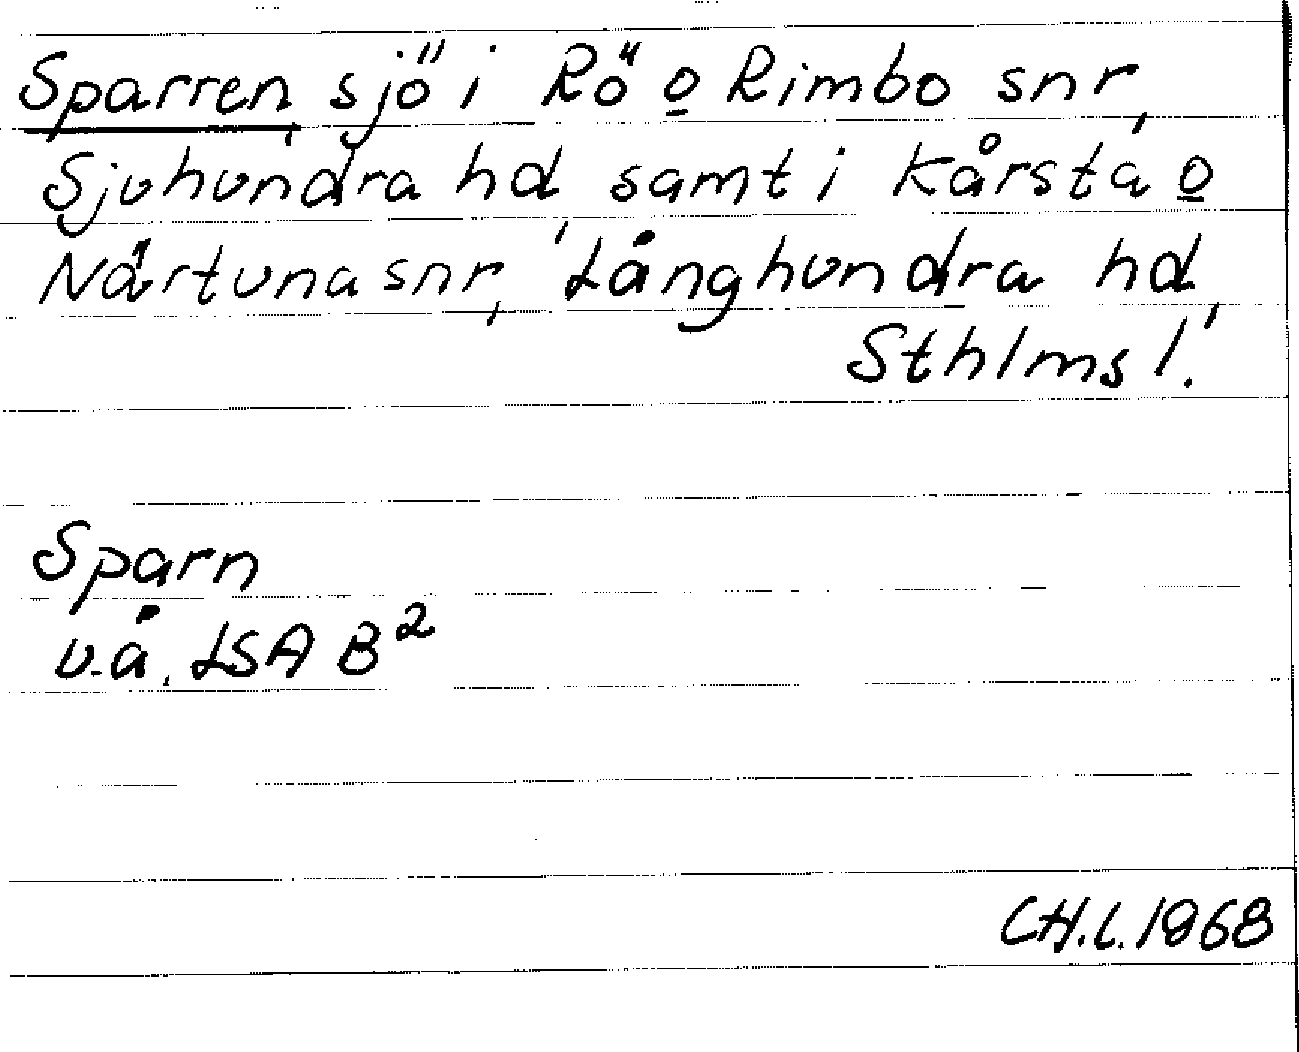 Sparren, sjö i Rö o Rimbo snr,
Sjuhundra hd samt i Kårsta o
Närtuna snr, Långhundra hd,
Sthlms l.
Sparn
u.å. LSA B²
CH.L. 1968